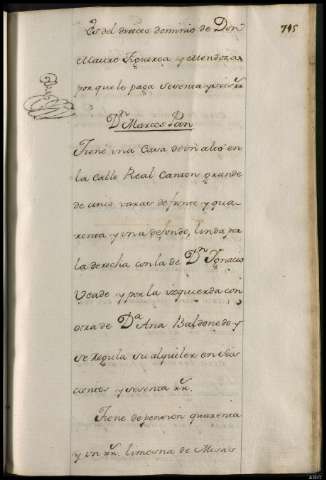 745
Es del directo dominio de Don
Mauro Figueroa y Mendoza
por que le paga sesenta y seis rr.
Dn. Marcos Pan
Tiene una Casa de un alto en
la Calle Real Canton grande
de cinco varas de frente y qua-
renta y una de fondo, linda por
la derecha con la de Dn. Ygnacio
Ucade y por la izquierda con
otra de Da. Ana Baldonedo y
se regula su alquiler en seis
cientos y sesenta rr.
Tiene de pension quarenta
y un rr. limosna de Misas